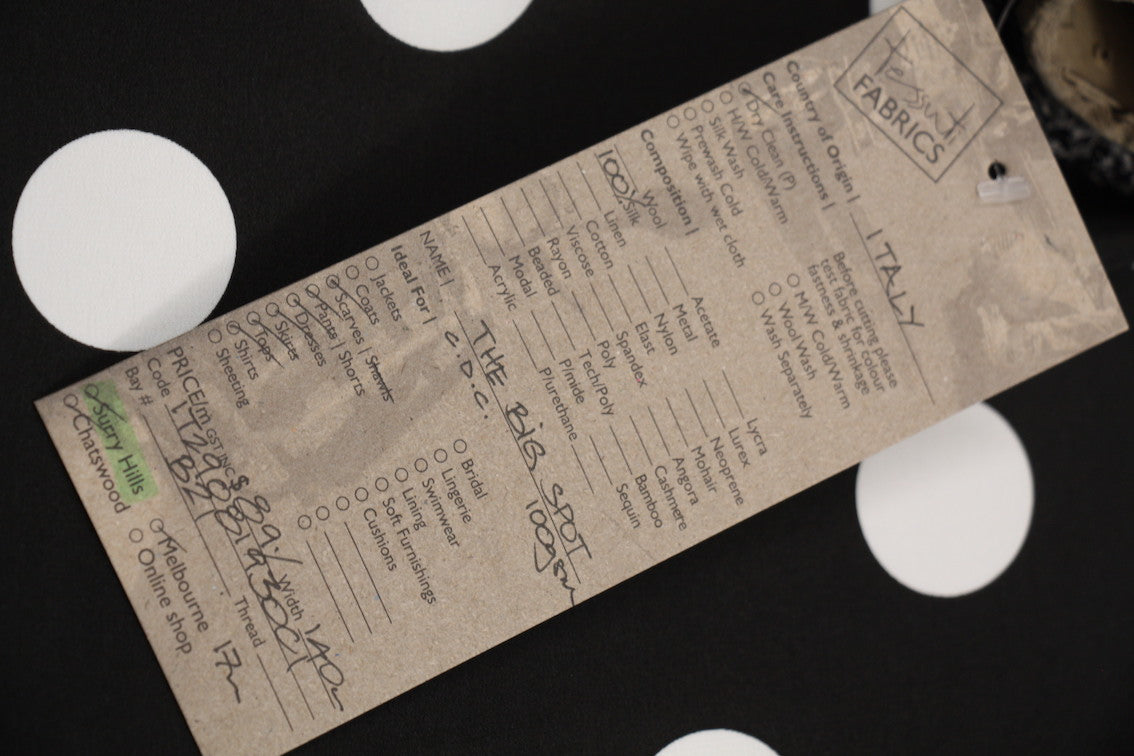 Tessuti
FABRICS
Country of Origin | ITALY
Care Instructions |
Dry Clean (P)
H/W Cold/Warm
Silk Wash
Prewash Cold
Wipe with wet cloth
Before cutting please
test fabric for colour
fastness & shrinkage
M/W Cold/Warm
Wool Wash
Wash Separately
Composition |
Wool
100% Silk
Linen
Cotton
Viscose
Rayon
Beaded
Modal
Acrylic
Acetate
Metal
Nylon
Elast
Spandex
Poly
Tech/Poly
P/mide
P/urethane
Lycra
Lurex
Neoprene
Mohair
Angora
Cashmere
Bamboo
Sequin
NAME | THE BIG SPOT
C.D.C. 100gsm
Ideal For |
Jackets
Coats
Scarves | Shawls
Pants | Shorts
Dresses
Skirts
Tops
Shirts
Sheeting
Bridal
Lingerie
Swimwear
Lining
Soft Furnishings
Cushions
PRICE/m GST INC $89./ Width 140
Code
Thread
Bay #
Surry Hills
Chatswood
Melbourne 17m
Online shop